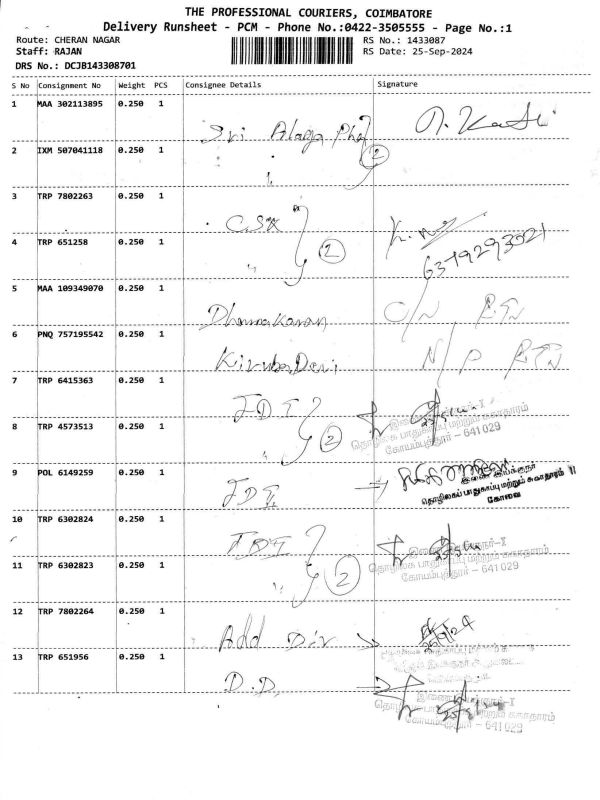 THE PROFESSIONAL COURIERS, COIMBATORE
Delivery Runsheet - PCM - Phone No.:0422-3505555 - Page No.:1
Route: CHERAN NAGAR RS No.: 1433087
Staff: RAJAN RS Date: 25-Sep-2024
DRS No.: DCJB143308701
S No Consignment No Weight PCS Consignee Details Signature
1 MAA 302113895 0.250 1
Sri Alaga
2 IXM 507041118 0.250 1 2
3 TRP 7802263 0.250 1
CSK
4 TRP 651258 0.250 1 2
6379293021
5 MAA 109349070 0.250 1
RTN
6 PNQ 757195542 0.250 1
Kiruba Devi N/P RTN
7 TRP 6415363 0.250 1
இணை இயக்குநர்-I
8 TRP 4573513 0.250 1 2
தொழிலக பாதுகாப்பு மற்றும் சுகாதாரம்
கோயம்புத்தூர் – 641 029
9 POL 6149259 0.250 1
இணை இயக்குநர் II
தொழிலகப் பாதுகாப்பு மற்றும் சுகாதாரம்
கோவை
10 TRP 6302824 0.250 1
இணை இயக்குநர்-I
11 TRP 6302823 0.250 1 2
தொழிலக பாதுகாப்பு மற்றும் சுகாதாரம்
கோயம்புத்தூர் – 641 029
12 TRP 7802264 0.250 1
Add Dir
13 TRP 651956 0.250 1
D.D.
இணை இயக்குநர்-I
தொழிலக பாதுகாப்பு மற்றும் சுகாதாரம்
கோயம்புத்தூர் – 641 029